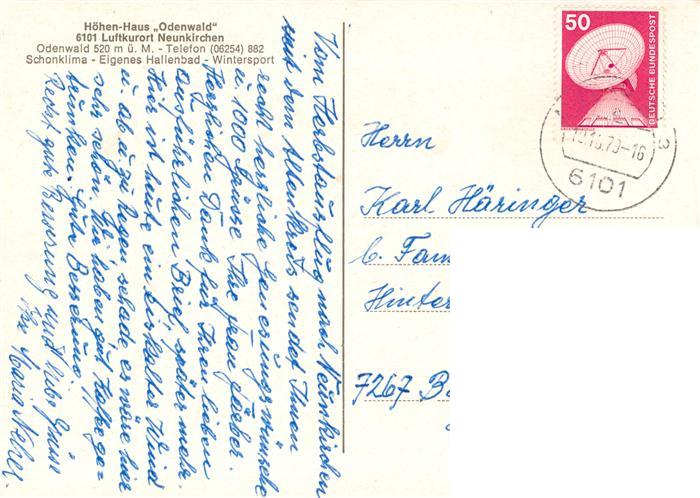 Höhen-Haus „Odenwald“
6101 Luftkurort Neunkirchen
Odenwald 520 m ü. M. - Telefon (06254) 882
Schonklima - Eigenes Hallenbad - Wintersport
Vom Herbstausflug nach Neunkirchen
mit dem Altenkreis sendet Ihnen
recht herzliche Genesungswünsche
u. 1000 Grüsse Ihre Frau
Herzlichen Dank für Ihren lieben
ausführlichen Brief, später mehr.
Hier ist heute ein eiskalter Wind
u. ab u. zu Regen schade es wäre hier
sehr schön. Wir haben gut Kaffee ge-
trunken. Gute Besserung
Recht gute Besserung und liebe Grüsse
Ihre Maria
50
DEUTSCHE BUNDESPOST
6101
Herrn
Karl Häringer
b. Fam
Hinter
7267 B